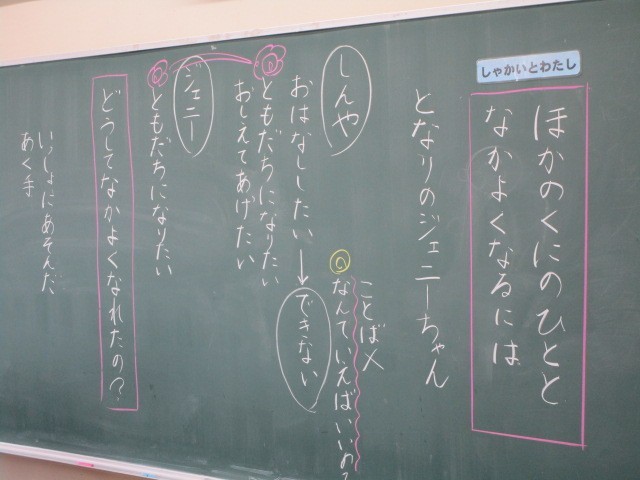 しゃかいとわたし
ほかのくにのひとと
なかよくなるには
となりのジェニーちゃん
しんや
ことば×
なんていえばいいの？
おはなししたい→できない
ともだちになりたい
おしえてあげたい
ジェニー
ともだちになりたい
どうしてなかよくなれたの？
いっしょにあそんだ、
あくま